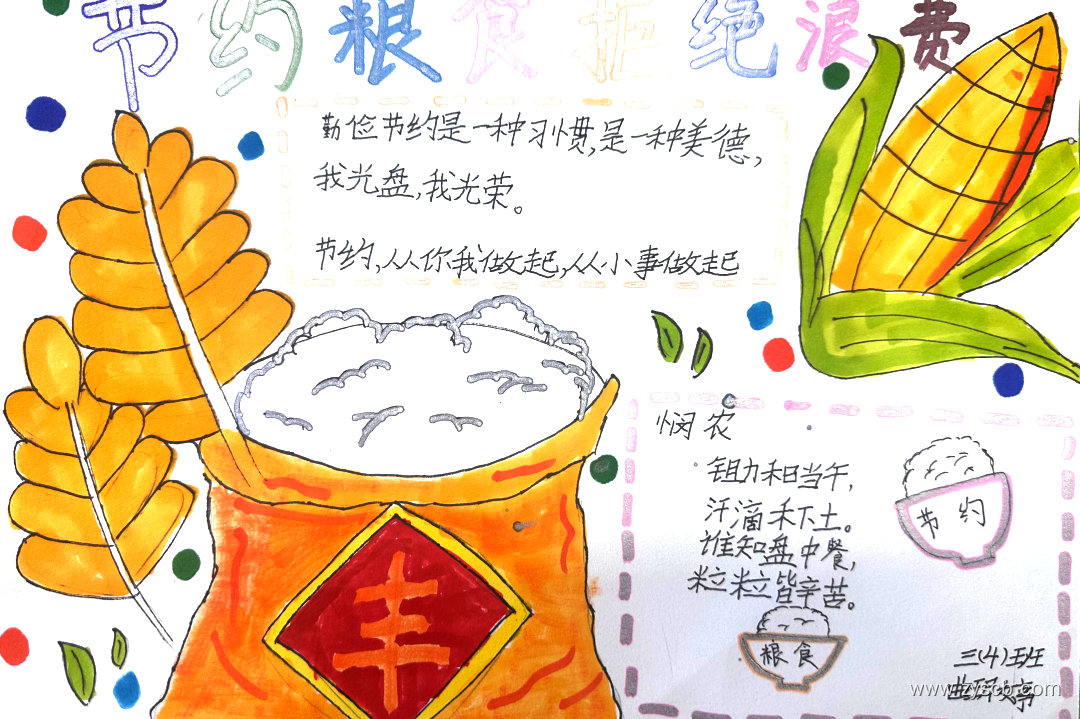 节约粮食拒绝浪费
勤俭节约是一种习惯,是一种美德,
我光盘,我光荣。
节约,从你我做起,从小事做起
悯农
锄力和日当午,
汗滴禾下土。
谁知盘中餐,
粒粒皆辛苦。
节约
粮食
丰
三(4)班
www.zyscb.com